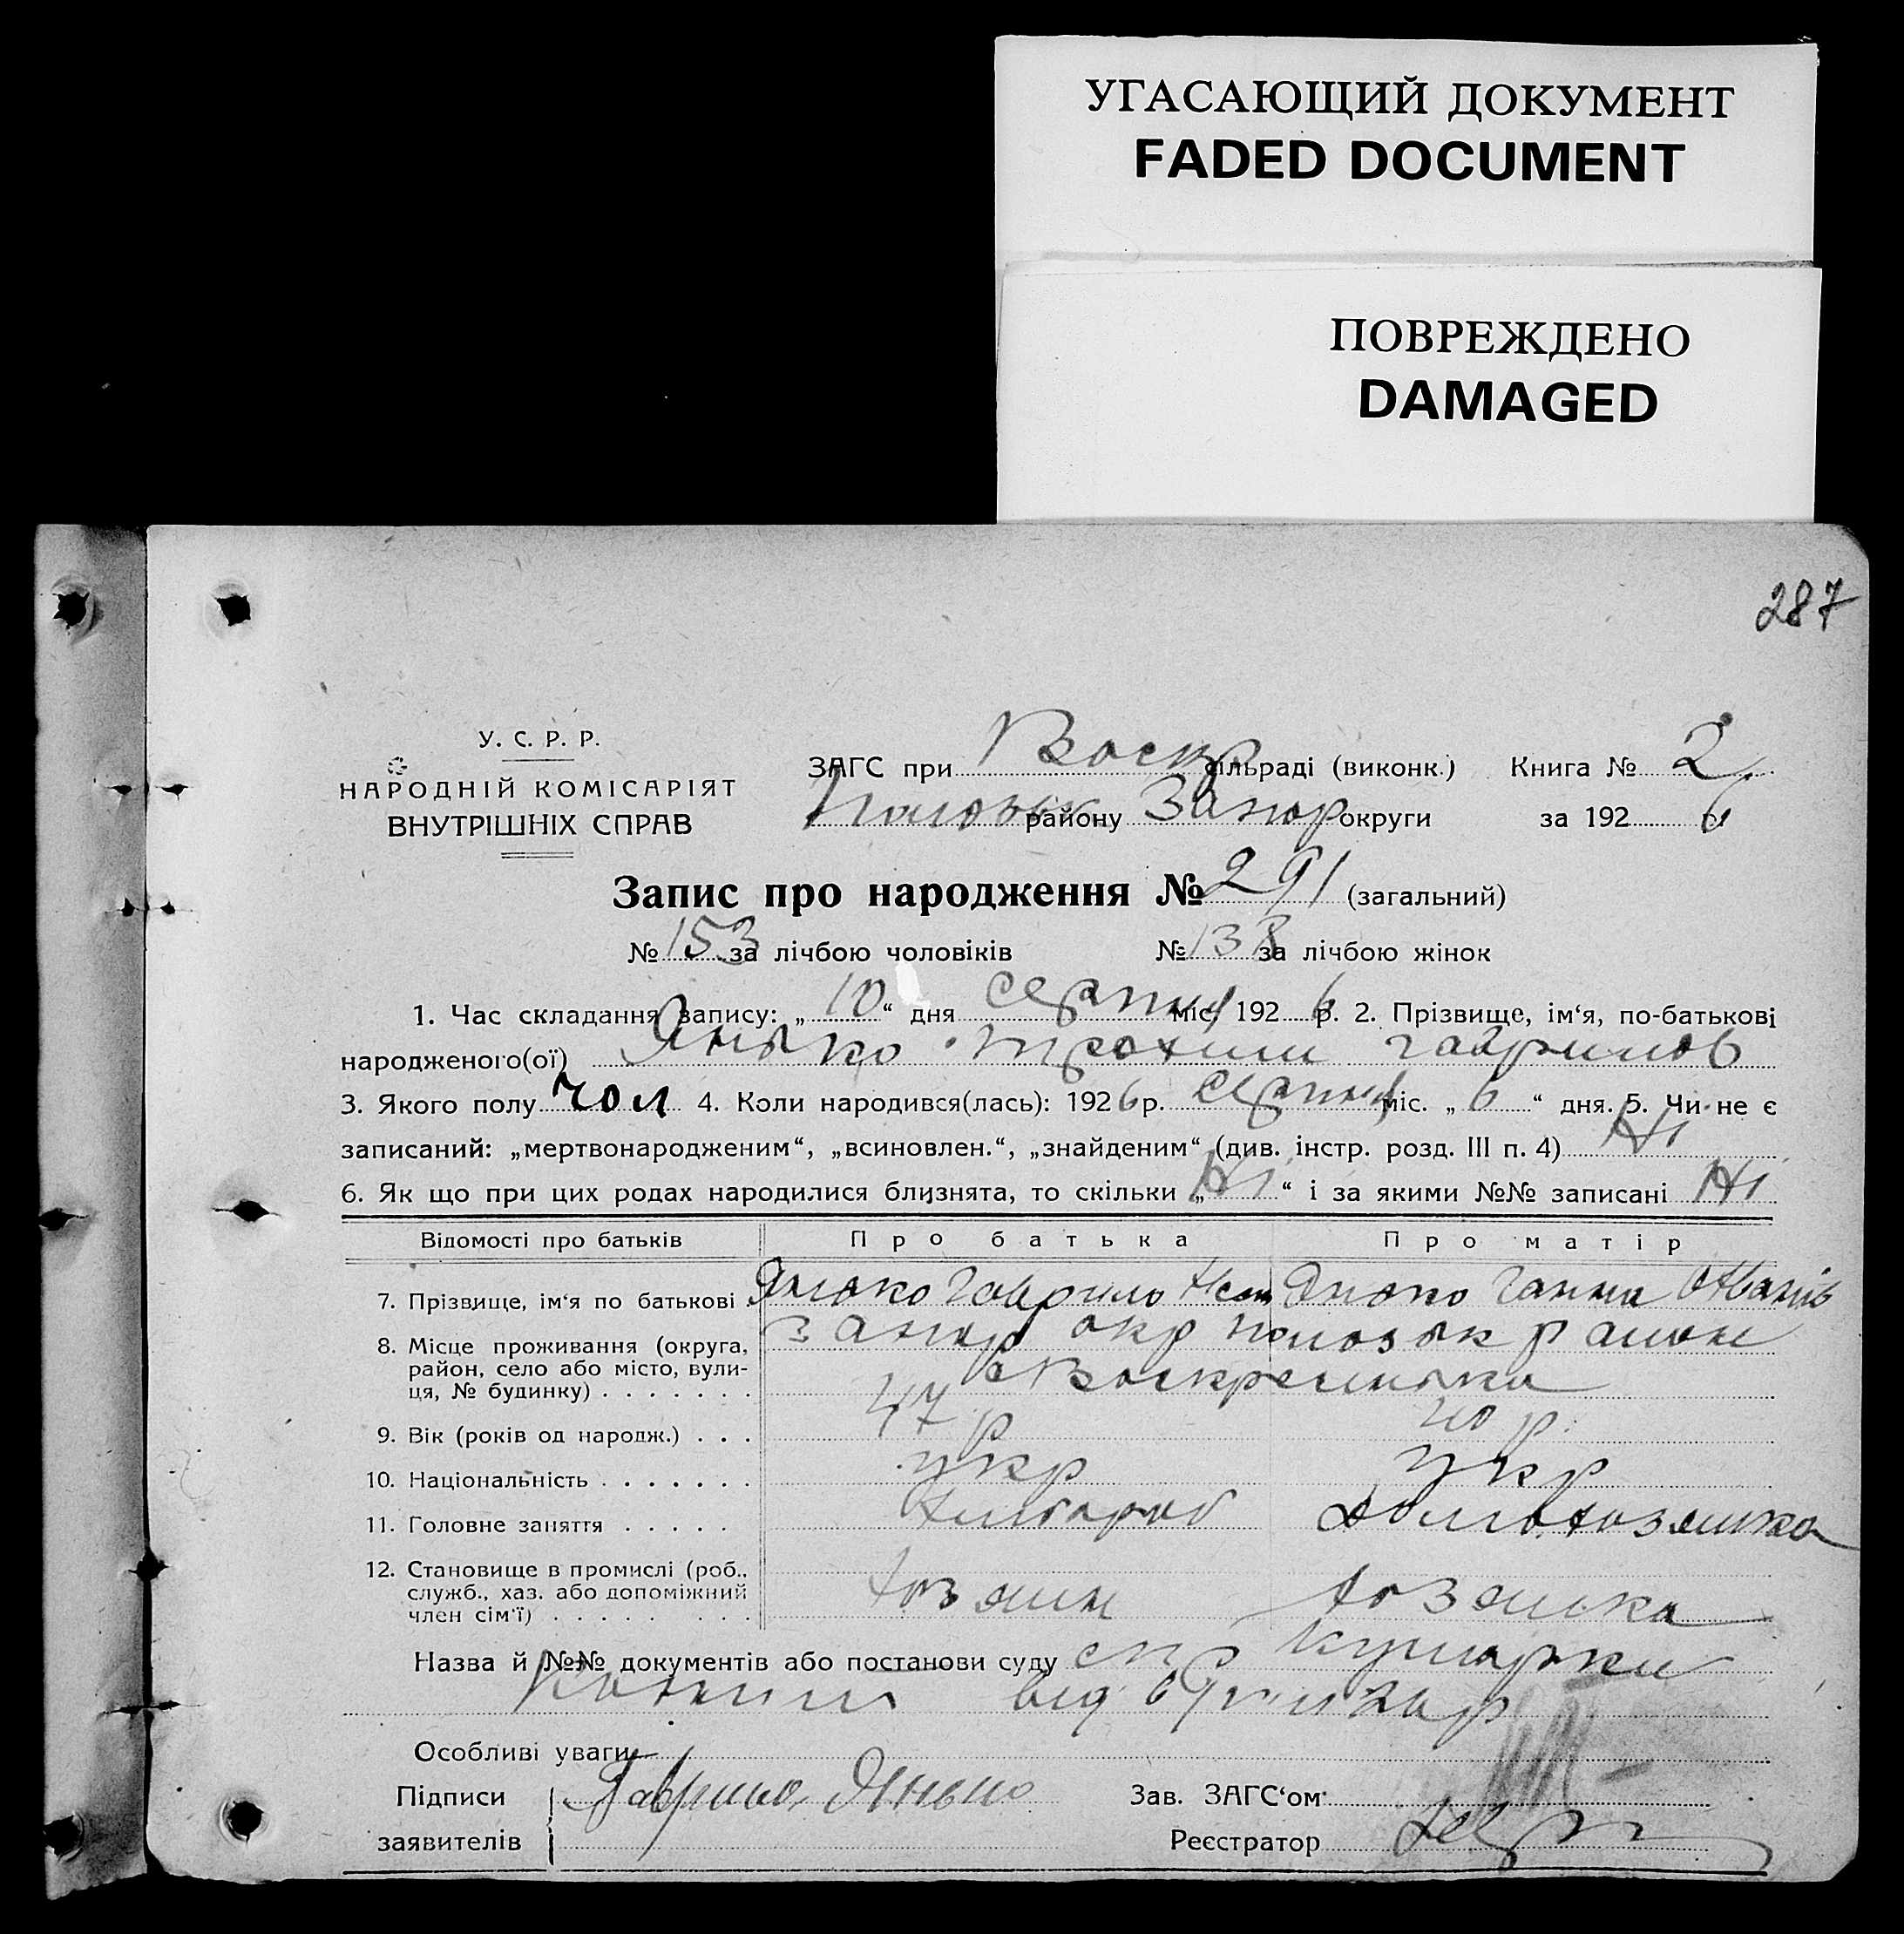 УГАСАЮЩИЙ ДОКУМЕНТ
FADED DOCUMENT
ПОВРЕЖДЕНО
DAMAGED
287
У. С. Р. Р.
НАРОДНІЙ КОМІСАРІЯТ
ВНУТРІШНІХ СПРАВ
ЗАГС при Воскр сільраді (виконк.) Книга № 2
району Запор округи за 192 6
Запис про народження № 291 (загальний)
№ 153 за лічбою чоловіків № 138 за лічбою жінок
1. Час складання запису: „ 10 “ дня серпня міс. 192 6 р. 2. Прізвище, ім‘я, по-батькові
народженого(ої) Янько Трохим Гаврилов
3. Якого полу чол 4. Коли народився(лась): 192 6 р. серпня міс. „ 6 “ дня. 5. Чи не є
записаний: „мертвонародженим“, „всиновлен.“, „знайденим“ (див. інстр. розд. III п. 4) Ні
6. Як що при цих родах народилися близнята, то скільки „ Ні “ і за якими №№ записані Ні
Відомості про батьків Про батька Про матір
7. Прізвище, ім‘я по батькові Янько Гаврило Янько Ганна
8. Місце проживання (округа, район, село або місто, вулиця, № будинку) Запор окр район
Воскресенька
9. Вік (років од народж.) 47 р 40 р.
10. Національність укр укр
11. Головне заняття хлібороб домохозяйка
12. Становище в промислі (роб., служб., хаз. або допоміжний член сім‘ї) хозяин хозяйка
Назва й №№ документів або постанови суду
від
Особливі уваги
Підписи Гаврило Янько Зав. ЗАГС‘ом
заявителів Реєстратор